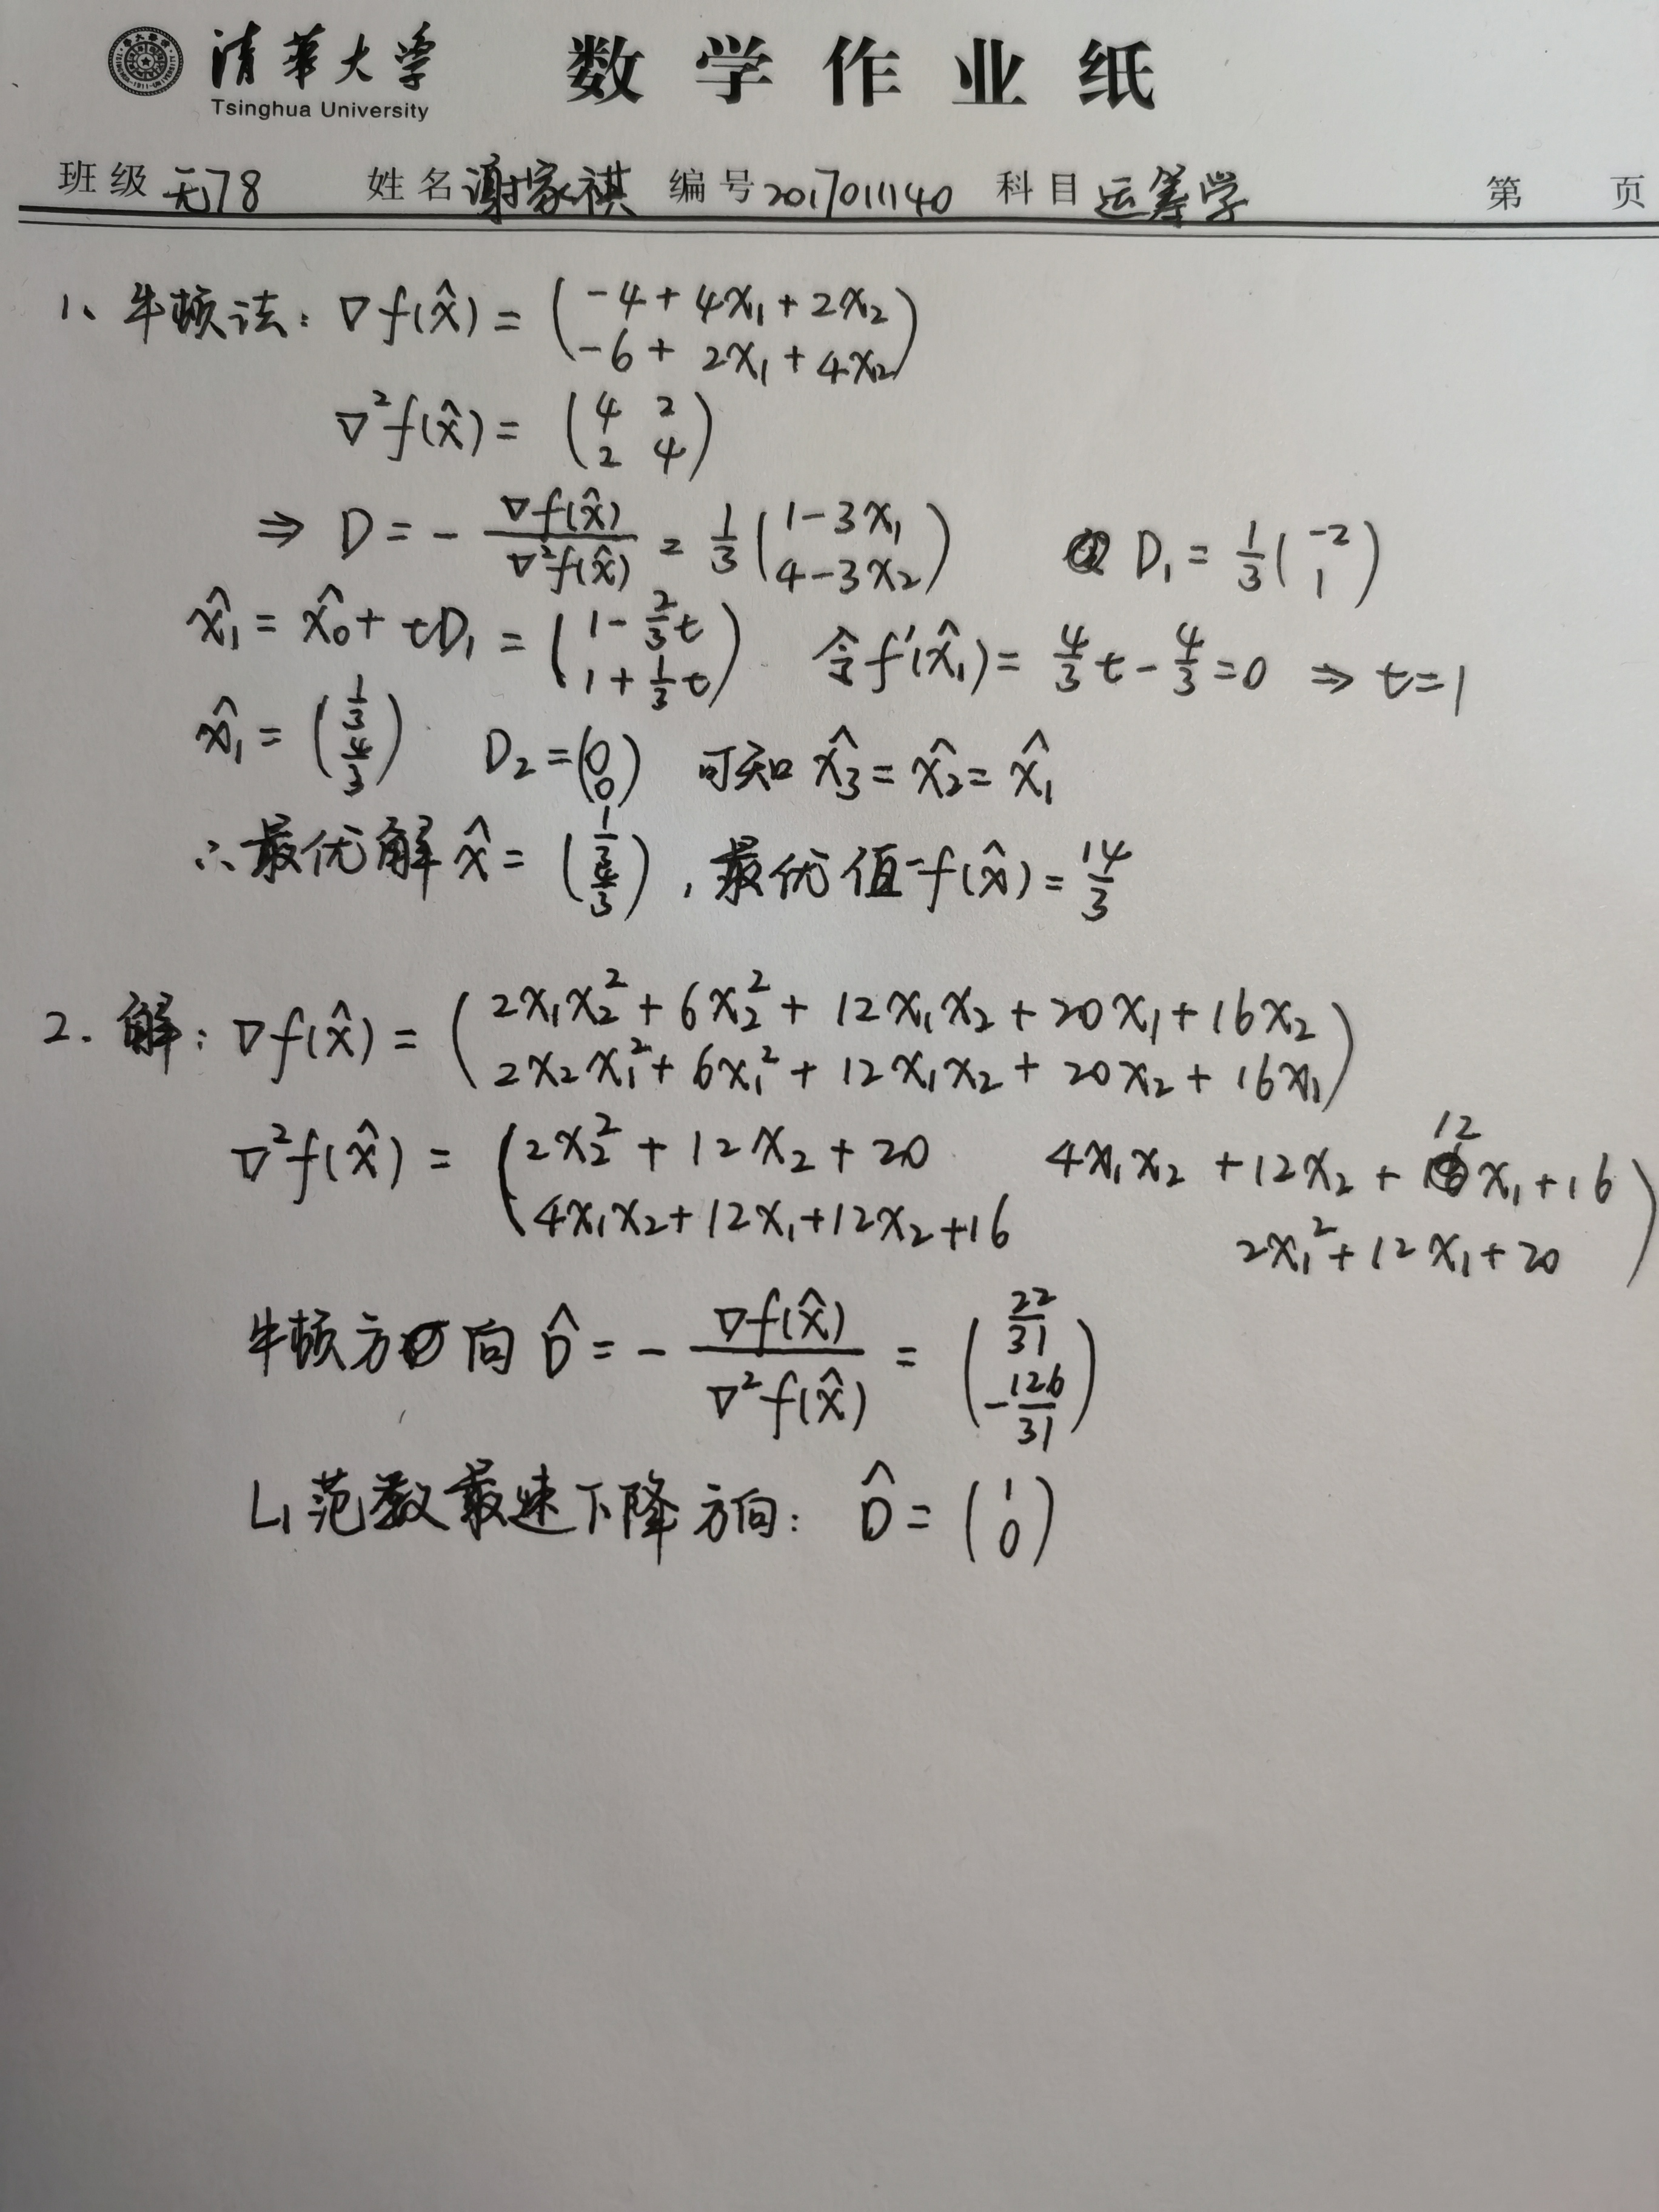 清华大学 数学作业纸
Tsinghua University
班级 无78 姓名 谢家祺 编号 2017011140 科目 运筹学 第 页
1、牛顿法: ∇f(x̂) = (-4+4x₁+2x₂ ; -6+2x₁+4x₂)
∇²f(x̂) = (4 2 ; 2 4)
⇒ D = - ∇f(x̂)/∇²f(x̂) = 1/3 (1-3x₁ ; 4-3x₂) D₁ = 1/3 (-2 ; 1)
x̂₁ = x̂₀ + tD₁ = (1-2/3t ; 1+1/3t) 令f'(x̂₁) = 4/3t - 4/3 = 0 ⇒ t=1
x̂₁ = (1/3 ; 4/3) D₂ = (0 ; 0) 可知 x̂₃ = x̂₂ = x̂₁
∴最优解 x̂ = (1/3 ; 4/3), 最优值 f(x̂) = 14/3
2. 解: ∇f(x̂) = (2x₁x₂²+6x₂²+12x₁x₂+20x₁+16x₂ ; 2x₂x₁²+6x₁²+12x₁x₂+20x₂+16x₁)
∇²f(x̂) = (2x₂²+12x₂+20 4x₁x₂+12x₂+12x₁+16 ; 4x₁x₂+12x₁+12x₂+16 2x₁²+12x₁+20)
牛顿方向 D̂ = - ∇f(x̂)/∇²f(x̂) = (22/31 ; -126/31)
L₁范数最速下降方向: D̂ = (1 ; 0)